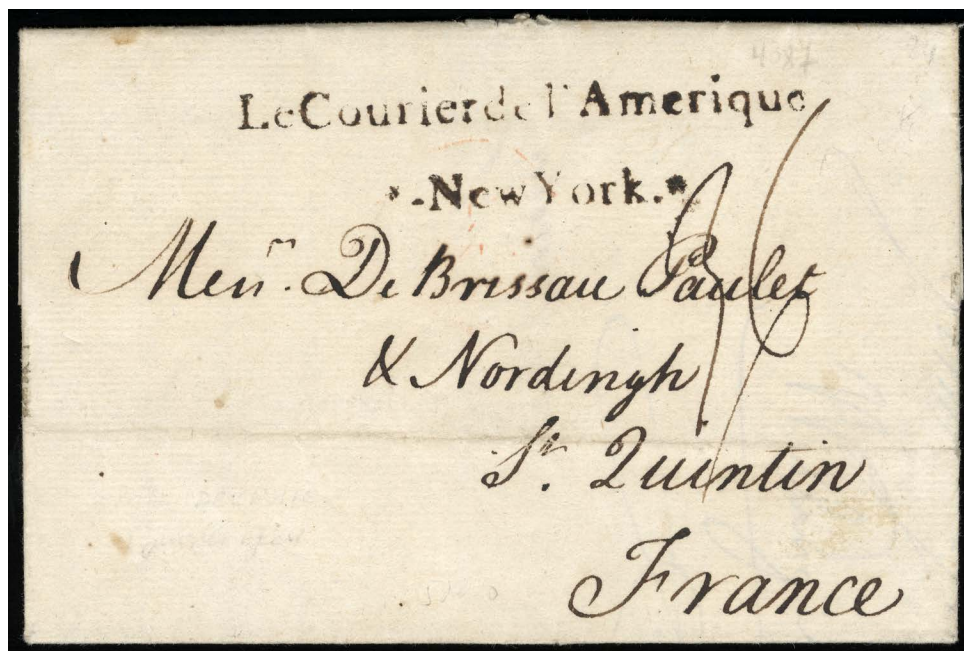 Le Courier de l'Amerique
*.New York.*
Mess.rs De Brissau Paulet
& Nordingh
St. Quintin
France
4087